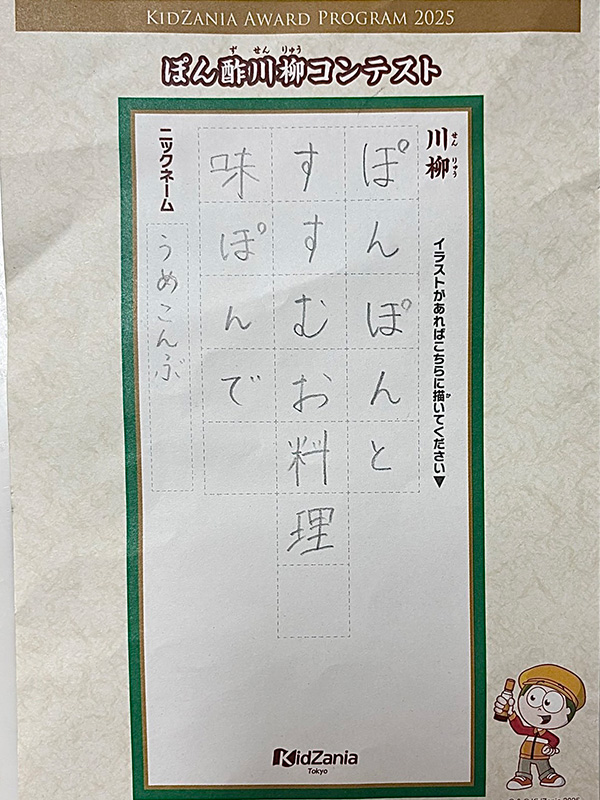 KIDZANIA AWARD PROGRAM 2025
ぽん酢川柳コンテスト
ず せん りゅう
川柳
せん りゅう
イラストがあればこちらに描いてください▼
か
ぽんぽんと
すすむお料理
味ぽんで
ニックネーム
うめこんぶ
KidZania
Tokyo